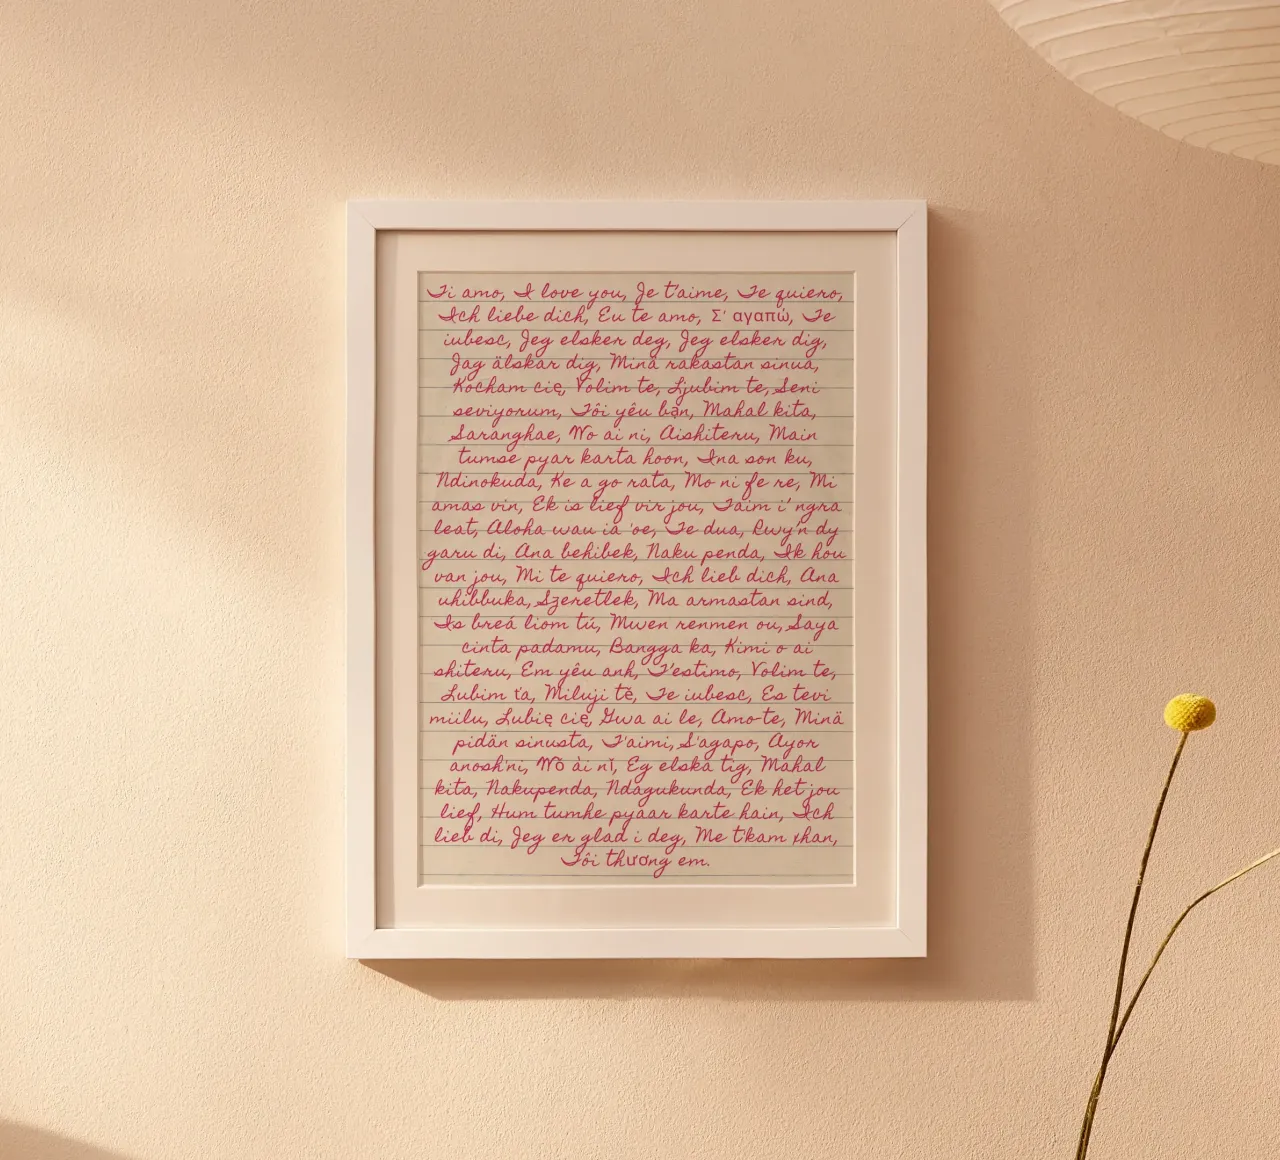 Ti amo, I love you, Je t'aime, Te quiero,
Ich liebe dich, Eu te amo, Σ' αγαπώ, Te
iubesc, Jeg elsker deg, Jeg elsker dig,
Jag älskar dig, Minä rakastan sinua,
Kocham cię, Volim te, Ljubim te, Seni
seviyorum, Tôi yêu bạn, Mahal kita,
Saranghae, Wo ai ni, Aishiteru, Main
tumse pyar karta hoon, Ina son ku,
Ndinokuda, Ke a go rata, Mo ni fe re, Mi
amas vin, Ek is lief vir jou, Taim i' ngra
leat, Aloha wau ia 'oe, Te dua, Rwy'n dy
garu di, Ana behibek, Naku penda, Ik hou
van jou, Mi te quiero, Ich lieb dich, Ana
uhibbuka, Szeretlek, Ma armastan sind,
Is breá liom tú, Mwen renmen ou, Saya
cinta padamu, Bangga ka, Kimi o ai
shiteru, Em yêu anh, T'estimo, Volim te,
Ľubim ťa, Miluji tě, Te iubesc, Es tevi
mīlu, Lubię cię, Gwa ai le, Amo-te, Minä
pidän sinusta, T'aimi, S'agapo, Ayor
anosh'ni, Wǒ ài nǐ, Eg elska tig, Mahal
kita, Nakupenda, Ndagukunda, Ek het jou
lief, Hum tumhe pyaar karte hain, Ich
lieb di, Jeg er glad i deg, Me t'kam xhan,
Tôi thương em.